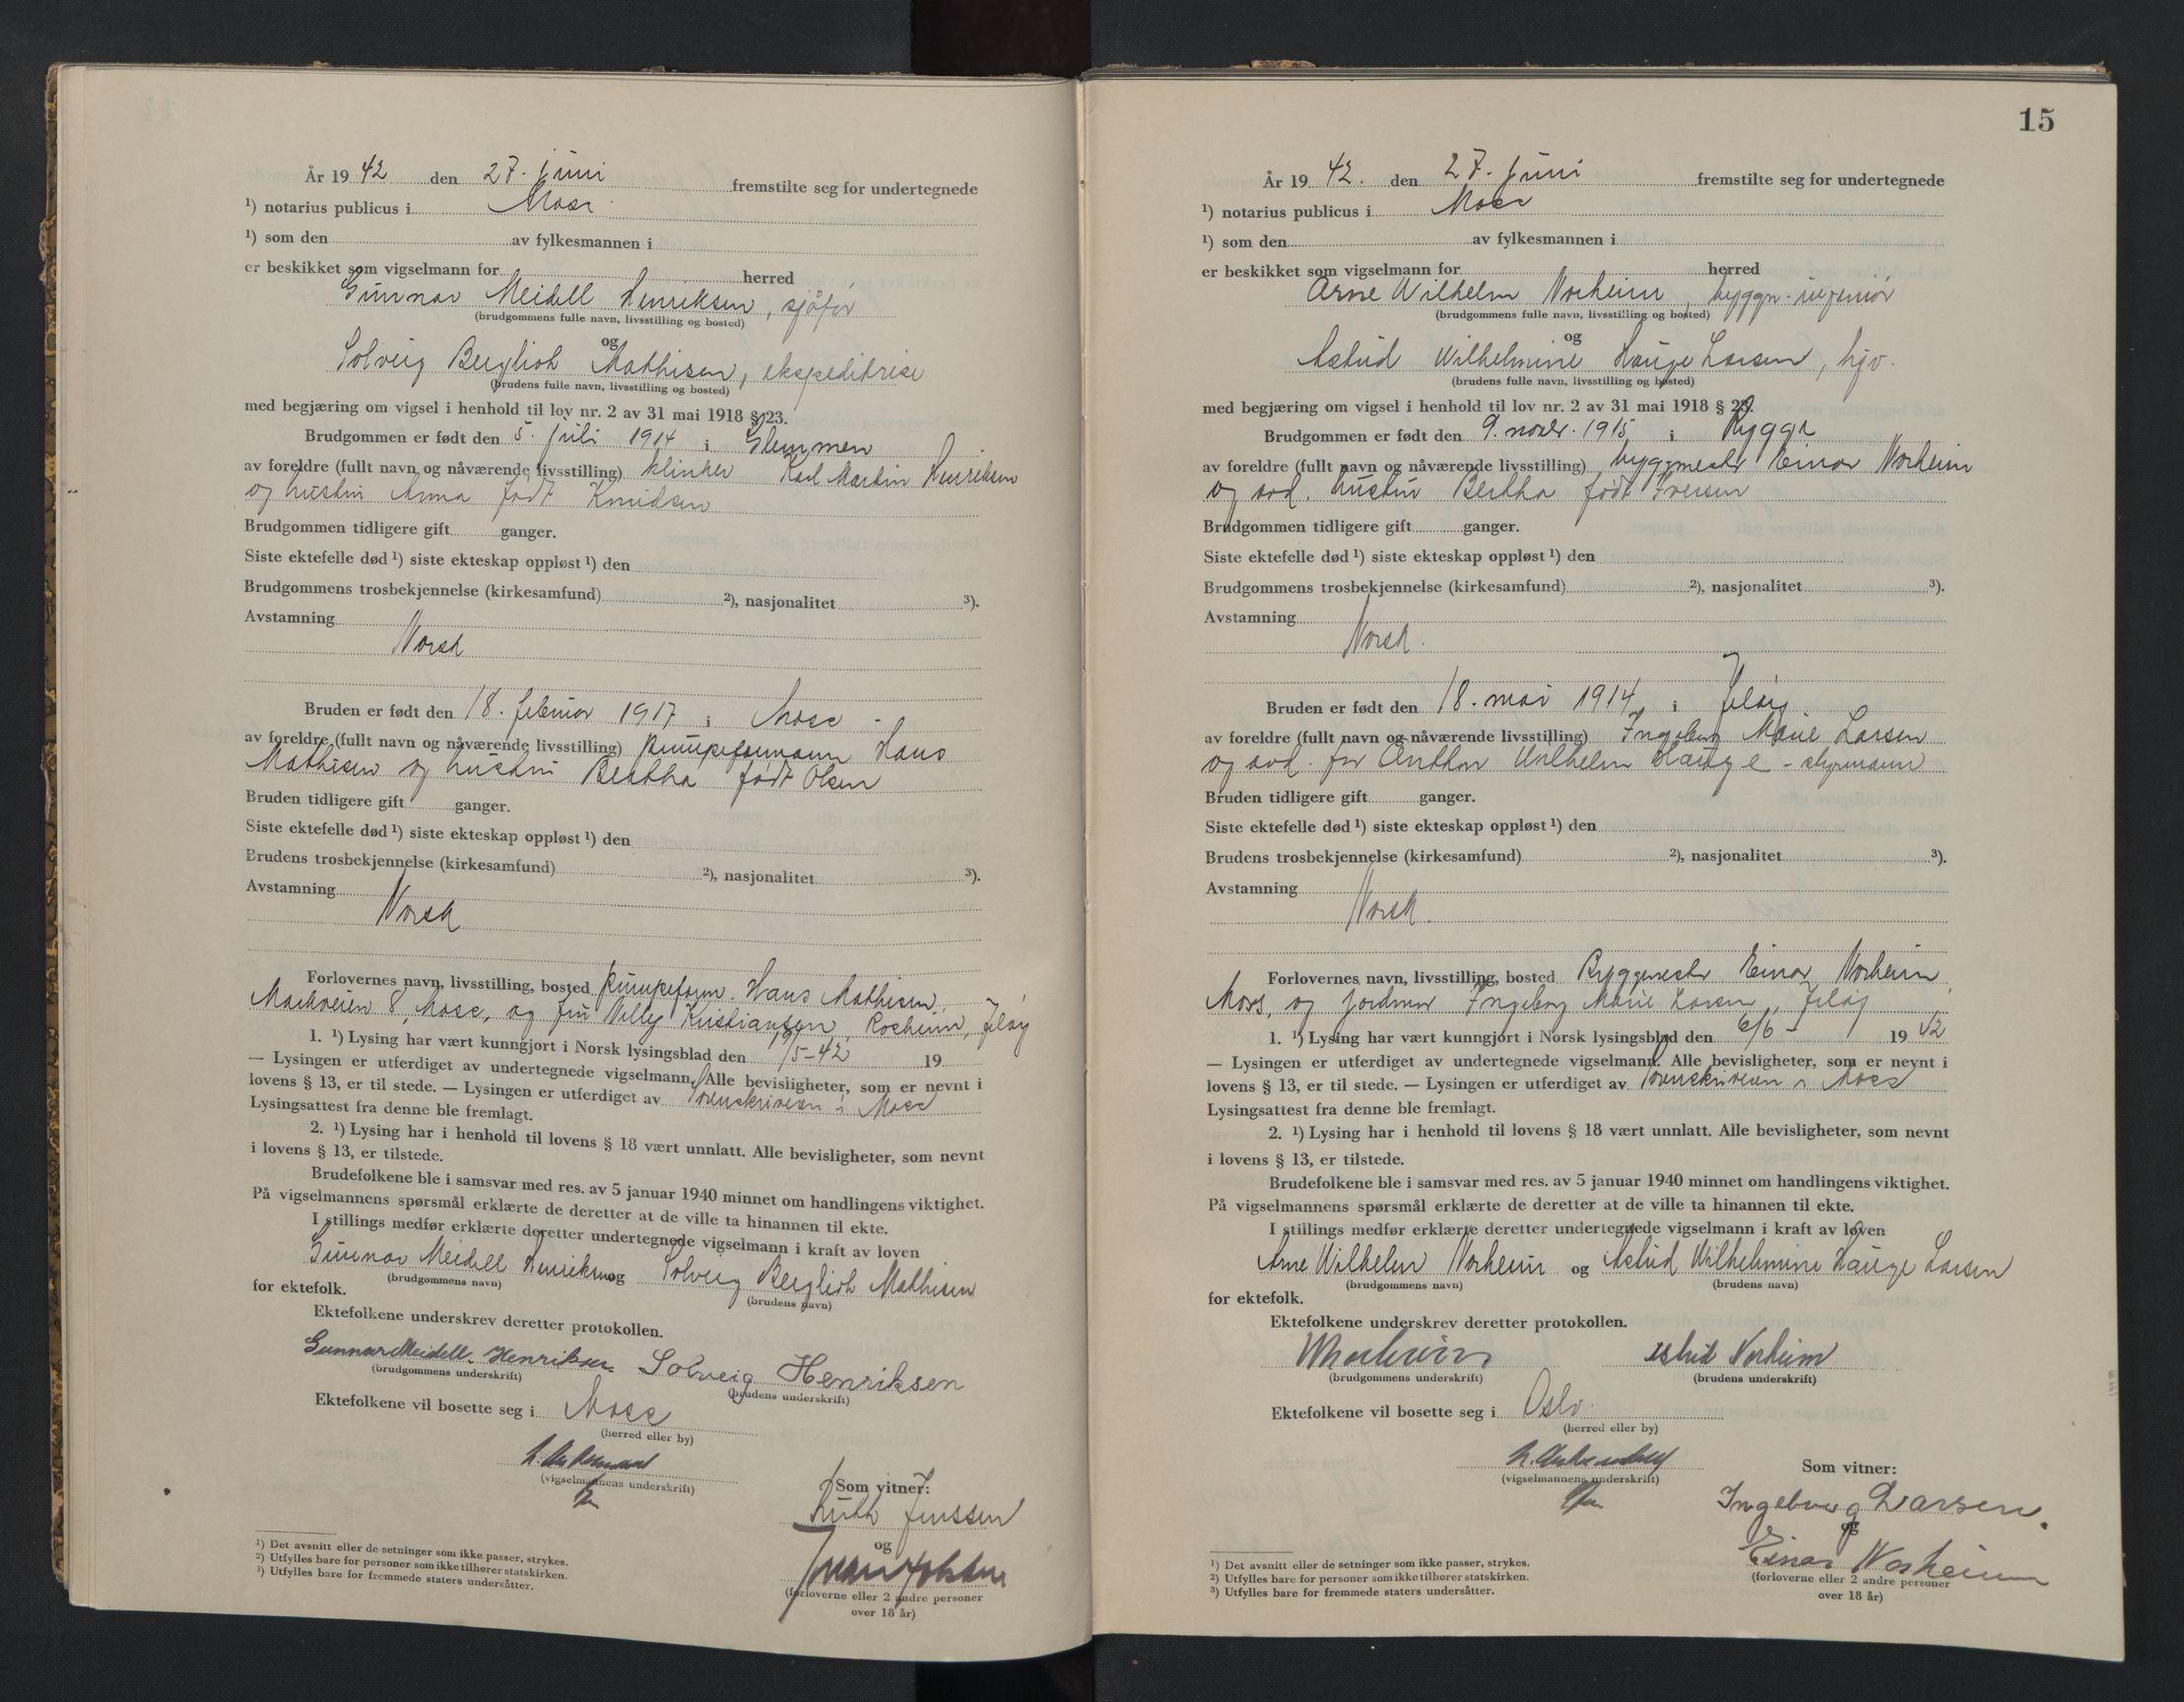 År 19 42 den 27. juni fremstilte seg for undertegnede
¹) notarius publicus i Moss
¹) som den av fylkesmannen i
er beskikket som vigselmann for herred
Gunnar Meidell Henriksen, sjåfør
(brudgommens fulle navn, livsstilling og bosted)
og
Solveig Bergliot Mathisen, ekspeditrise
(brudens fulle navn, livsstilling og bosted)
med begjæring om vigsel i henhold til lov nr. 2 av 31 mai 1918 § 23.
Brudgommen er født den 5. juli 1914 i Glemmen
av foreldre (fullt navn og nåværende livsstilling) klinker Karl Martin Henriksen
og hustru Anna født Knudsen
Brudgommen tidligere gift ganger.
Siste ektefelle død ¹) siste ekteskap oppløst ¹) den
Brudgommens trosbekjennelse (kirkesamfund) ²), nasjonalitet ³).
Avstamning
Norsk
Bruden er født den 18. februar 1917 i Moss -
av foreldre (fullt navn og nåværende livsstilling) Pumpeformann Hans
Mathisen og hustru Bertha født Olsen
Bruden tidligere gift ganger.
Siste ektefelle død ¹) siste ekteskap oppløst ¹) den
Brudens trosbekjennelse (kirkesamfund) ²), nasjonalitet ³).
Avstamning
Norsk
Forlovernes navn, livsstilling, bosted Pumpeform. Hans Mathisen,
Markveien 8, Moss, og fru Villy Kristiansen, Rosheim, Jeløy
1. ¹) Lysing har vært kunngjort i Norsk lysingsblad den 19
— Lysingen er utferdiget av undertegnede vigselmann. Alle bevisligheter, som er nevnt i
lovens § 13, er til stede. — Lysingen er utferdiget av Sorenskriveren i Moss
Lysingsattest fra denne ble fremlagt.
2. ¹) Lysing har i henhold til lovens § 18 vært unnlatt. Alle bevisligheter, som nevnt
i lovens § 13, er tilstede.
Brudefolkene ble i samsvar med res. av 5 januar 1940 minnet om handlingens viktighet.
På vigselmannens spørsmål erklærte de deretter at de ville ta hinannen til ekte.
I stillings medfør erklærte deretter undertegnede vigselmann i kraft av loven
Gunnar Meidell Henriksen og Solveig Bergliot Mathisen
(brudgommens navn) (brudens navn)
for ektefolk.
Ektefolkene underskrev deretter protokollen.
Gunnar Meidell Henriksen Solveig Henriksen
(brudgommens underskrift) (brudens underskrift)
Ektefolkene vil bosette seg i Moss
(herred eller by)
(vigselmannens underskrift)
Som vitner:
Ruth Jenssen
og
(forloverne eller 2 andre personer
over 18 år)
¹) Det avsnitt eller de setninger som ikke passer, strykes.
²) Utfylles bare for personer som ikke tilhører statskirken.
³) Utfylles bare for fremmede staters undersåtter.
15
År 19 42. den 27. juni fremstilte seg for undertegnede
¹) notarius publicus i Moss
¹) som den av fylkesmannen i
er beskikket som vigselmann for herred
Arne Wilhelm Norheim, byggn. ingeniør
(brudgommens fulle navn, livsstilling og bosted)
og
Astrid Wilhelmine Hauge Larsen, hjv.
(brudens fulle navn, livsstilling og bosted)
med begjæring om vigsel i henhold til lov nr. 2 av 31 mai 1918 § 23.
Brudgommen er født den 9. novbr. 1915 i Rygge
av foreldre (fullt navn og nåværende livsstilling) byggmestr Einar Norheim
og avd. hustru Bertha født Iversen
Brudgommen tidligere gift ganger.
Siste ektefelle død ¹) siste ekteskap oppløst ¹) den
Brudgommens trosbekjennelse (kirkesamfund) ²), nasjonalitet ³).
Avstamning
Norsk.
Bruden er født den 18. mai 1914 i Jeløy
av foreldre (fullt navn og nåværende livsstilling) Ingeborg Marie Larsen
og avd. far Anthon Wilhelm Hauge - styrmann
Bruden tidligere gift ganger.
Siste ektefelle død ¹) siste ekteskap oppløst ¹) den
Brudens trosbekjennelse (kirkesamfund) ²), nasjonalitet ³).
Avstamning
Norsk.
Forlovernes navn, livsstilling, bosted Byggmestr Einar Norheim
Moss, og jordmor Ingeborg Marie Larsen, Jeløy
1. ¹) Lysing har vært kunngjort i Norsk lysingsblad den 6/6 - 19 42
— Lysingen er utferdiget av undertegnede vigselmann. Alle bevisligheter, som er nevnt i
lovens § 13, er til stede. — Lysingen er utferdiget av Sorenskriveren i Moss
Lysingsattest fra denne ble fremlagt.
2. ¹) Lysing har i henhold til lovens § 18 vært unnlatt. Alle bevisligheter, som nevnt
i lovens § 13, er tilstede.
Brudefolkene ble i samsvar med res. av 5 januar 1940 minnet om handlingens viktighet.
På vigselmannens spørsmål erklærte de deretter at de ville ta hinannen til ekte.
I stillings medfør erklærte deretter undertegnede vigselmann i kraft av loven
Arne Wilhelm Norheim og Astrid Wilhelmine Hauge Larsen
(brudgommens navn) (brudens navn)
for ektefolk.
Ektefolkene underskrev deretter protokollen.
Norheim Astrid Norheim
(brudgommens underskrift) (brudens underskrift)
Ektefolkene vil bosette seg i Oslo.
(herred eller by)
(vigselmannens underskrift)
Som vitner:
Ingeborg Larsen.
og
Einar Norheim
(forloverne eller 2 andre personer
over 18 år)
¹) Det avsnitt eller de setninger som ikke passer, strykes.
²) Utfylles bare for personer som ikke tilhører statskirken.
³) Utfylles bare for fremmede staters undersåtter.